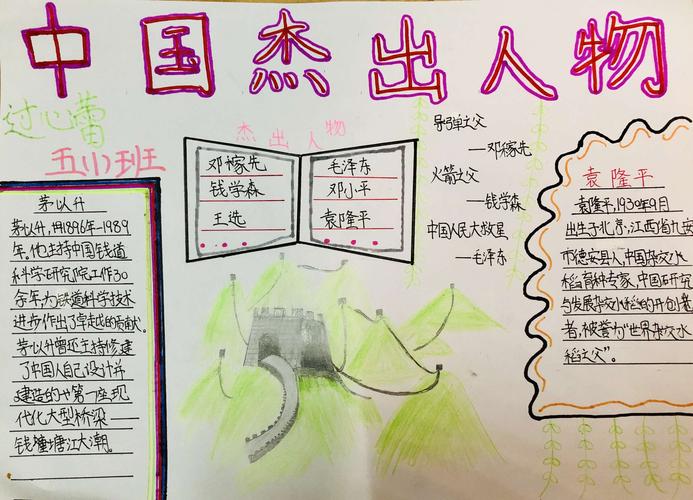 中国杰出人物
过心蕾
五(1)班
茅以升
茅以升,(1896年-1989
年,他主持中国铁道
科学研究院工作30
余年,为铁道科学技术
进步作出了卓越的贡献。
茅以升曾还主持修建
了中国人自己设计并
建造的第一座现
代化大型桥梁——
钱塘江大潮。
杰出人物
邓稼先
钱学森
王选
毛泽东
邓小平
袁隆平
导弹之父
——邓稼先
火箭之父
——钱学森
中国人民大救星
——毛泽东
袁隆平
袁隆平,1930年9月
出生于北京,江西省九
市德安县人,中国杂交水
稻育种专家,中国研究
与发展杂交水稻的开创者
者,被誉为“世界杂交水
稻之父”。